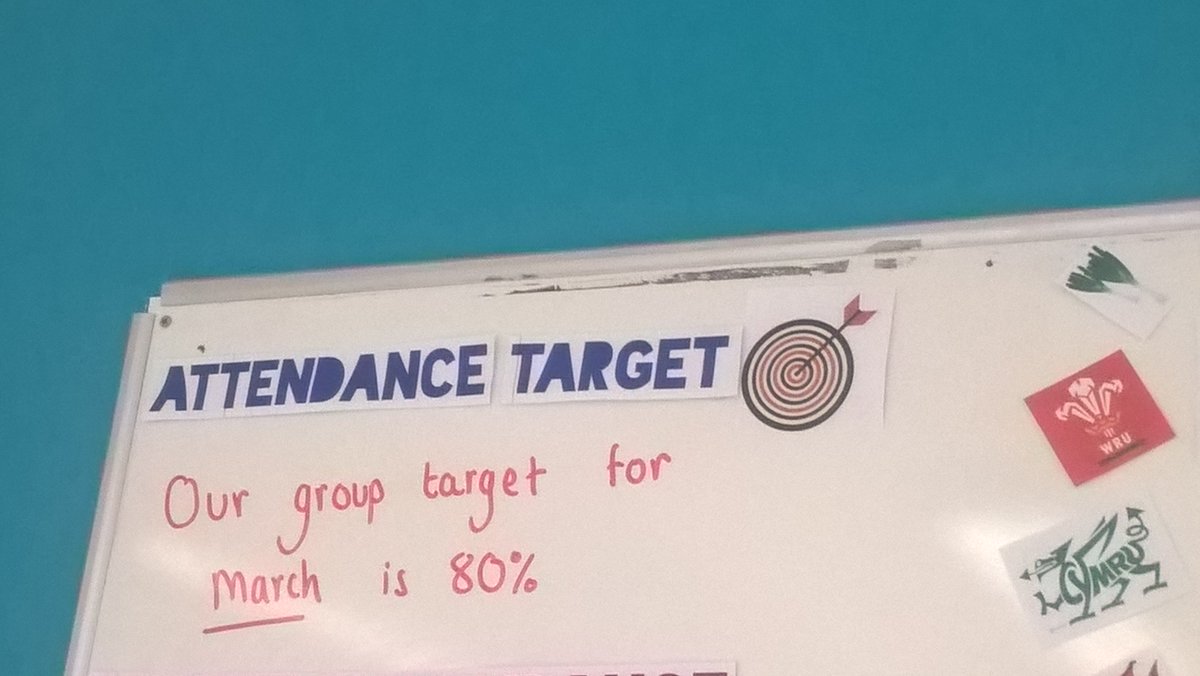 ATTENDANCE TARGET
Our group target for
March is 80%
WRU
CYMRU